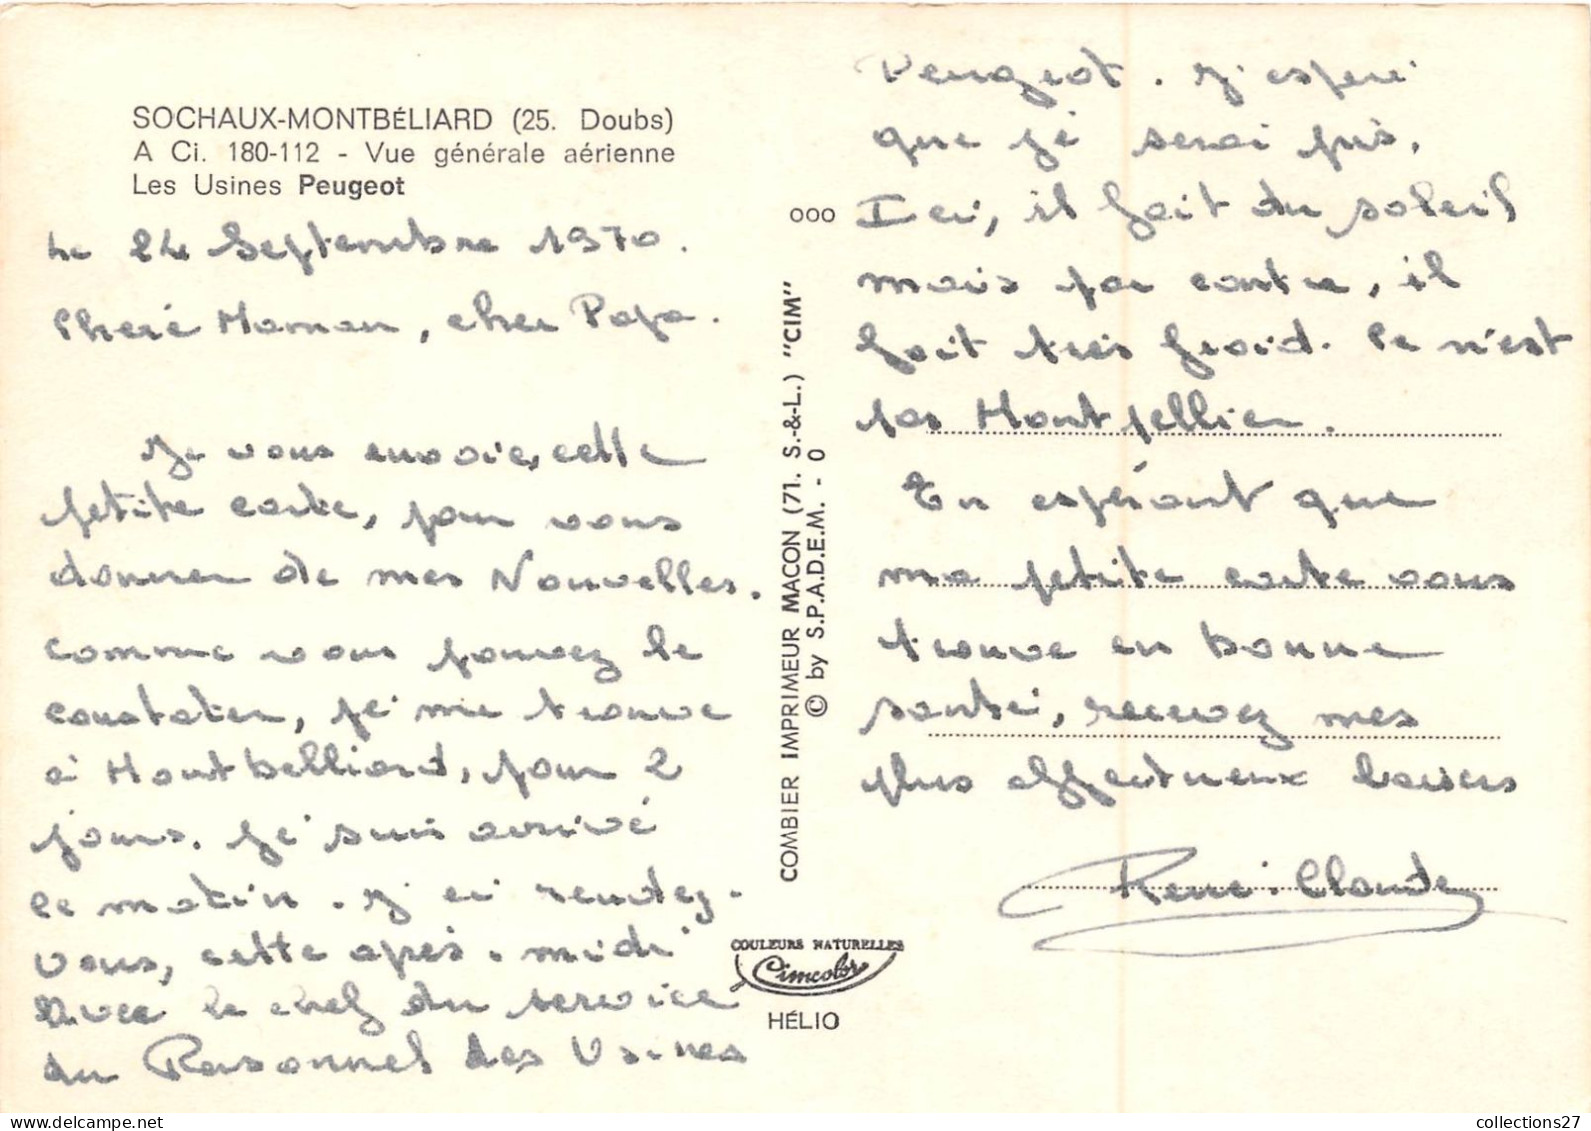 SOCHAUX-MONTBÉLIARD (25. Doubs)
A Ci. 180-112 - Vue générale aérienne
Les Usines Peugeot
Le 24 Septembre 1970.
Cheré Maman, cher Papa.
Je vous envoie, cette
petite carte, pour vous
donner de mes Nouvelles.
comme vous pouvez le
constater, je me trouve
a Montbelliard, pour 2
jours. Je suis arrivé
ce matin. J'ai rendez-
vous, cette aprés-midi
Avec le chef du service
du Personnel des Usines
Peugeot. J'espere
que je serai pris.
Ici, il fait du soleil
mais par contre, il
fait très froid. Ce n'est
pas Montpellier.
En espérant que
ma petite carte vous
trouve en bonne
santé, recevez mes
plus affectueux baisers
René-Claude
COMBIER IMPRIMEUR MACON (71. S.-&-L.) "CIM"
© by S.P.A.D.E.M. - 0
ooo
COULEURS NATURELLES
Cimcolor
HÉLIO
collections27